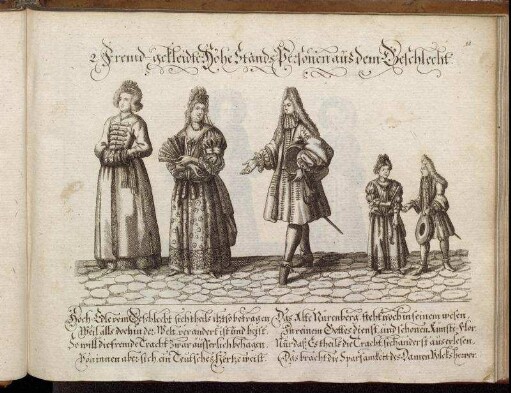 2. Fremd-gekleidte Hohe Stands Personen aus dem Geschlecht.
Hoch Edle vom Geschlecht sich theils itzt so betragen
Weil alls doch in der Welt verändert ist und
So will die fremde Tracht zwar äusserlich behagen,
innen aber sich ein Teutsches Hertz weist.
Das Alte Nürnberg steht noch in seinem wesen
In reinem Gottes dienst, und schönen Kunste Flor
Nur daß Es theils die Tracht sich anderst auserlesen.
Das bracht die Sparsamkeit des Damen